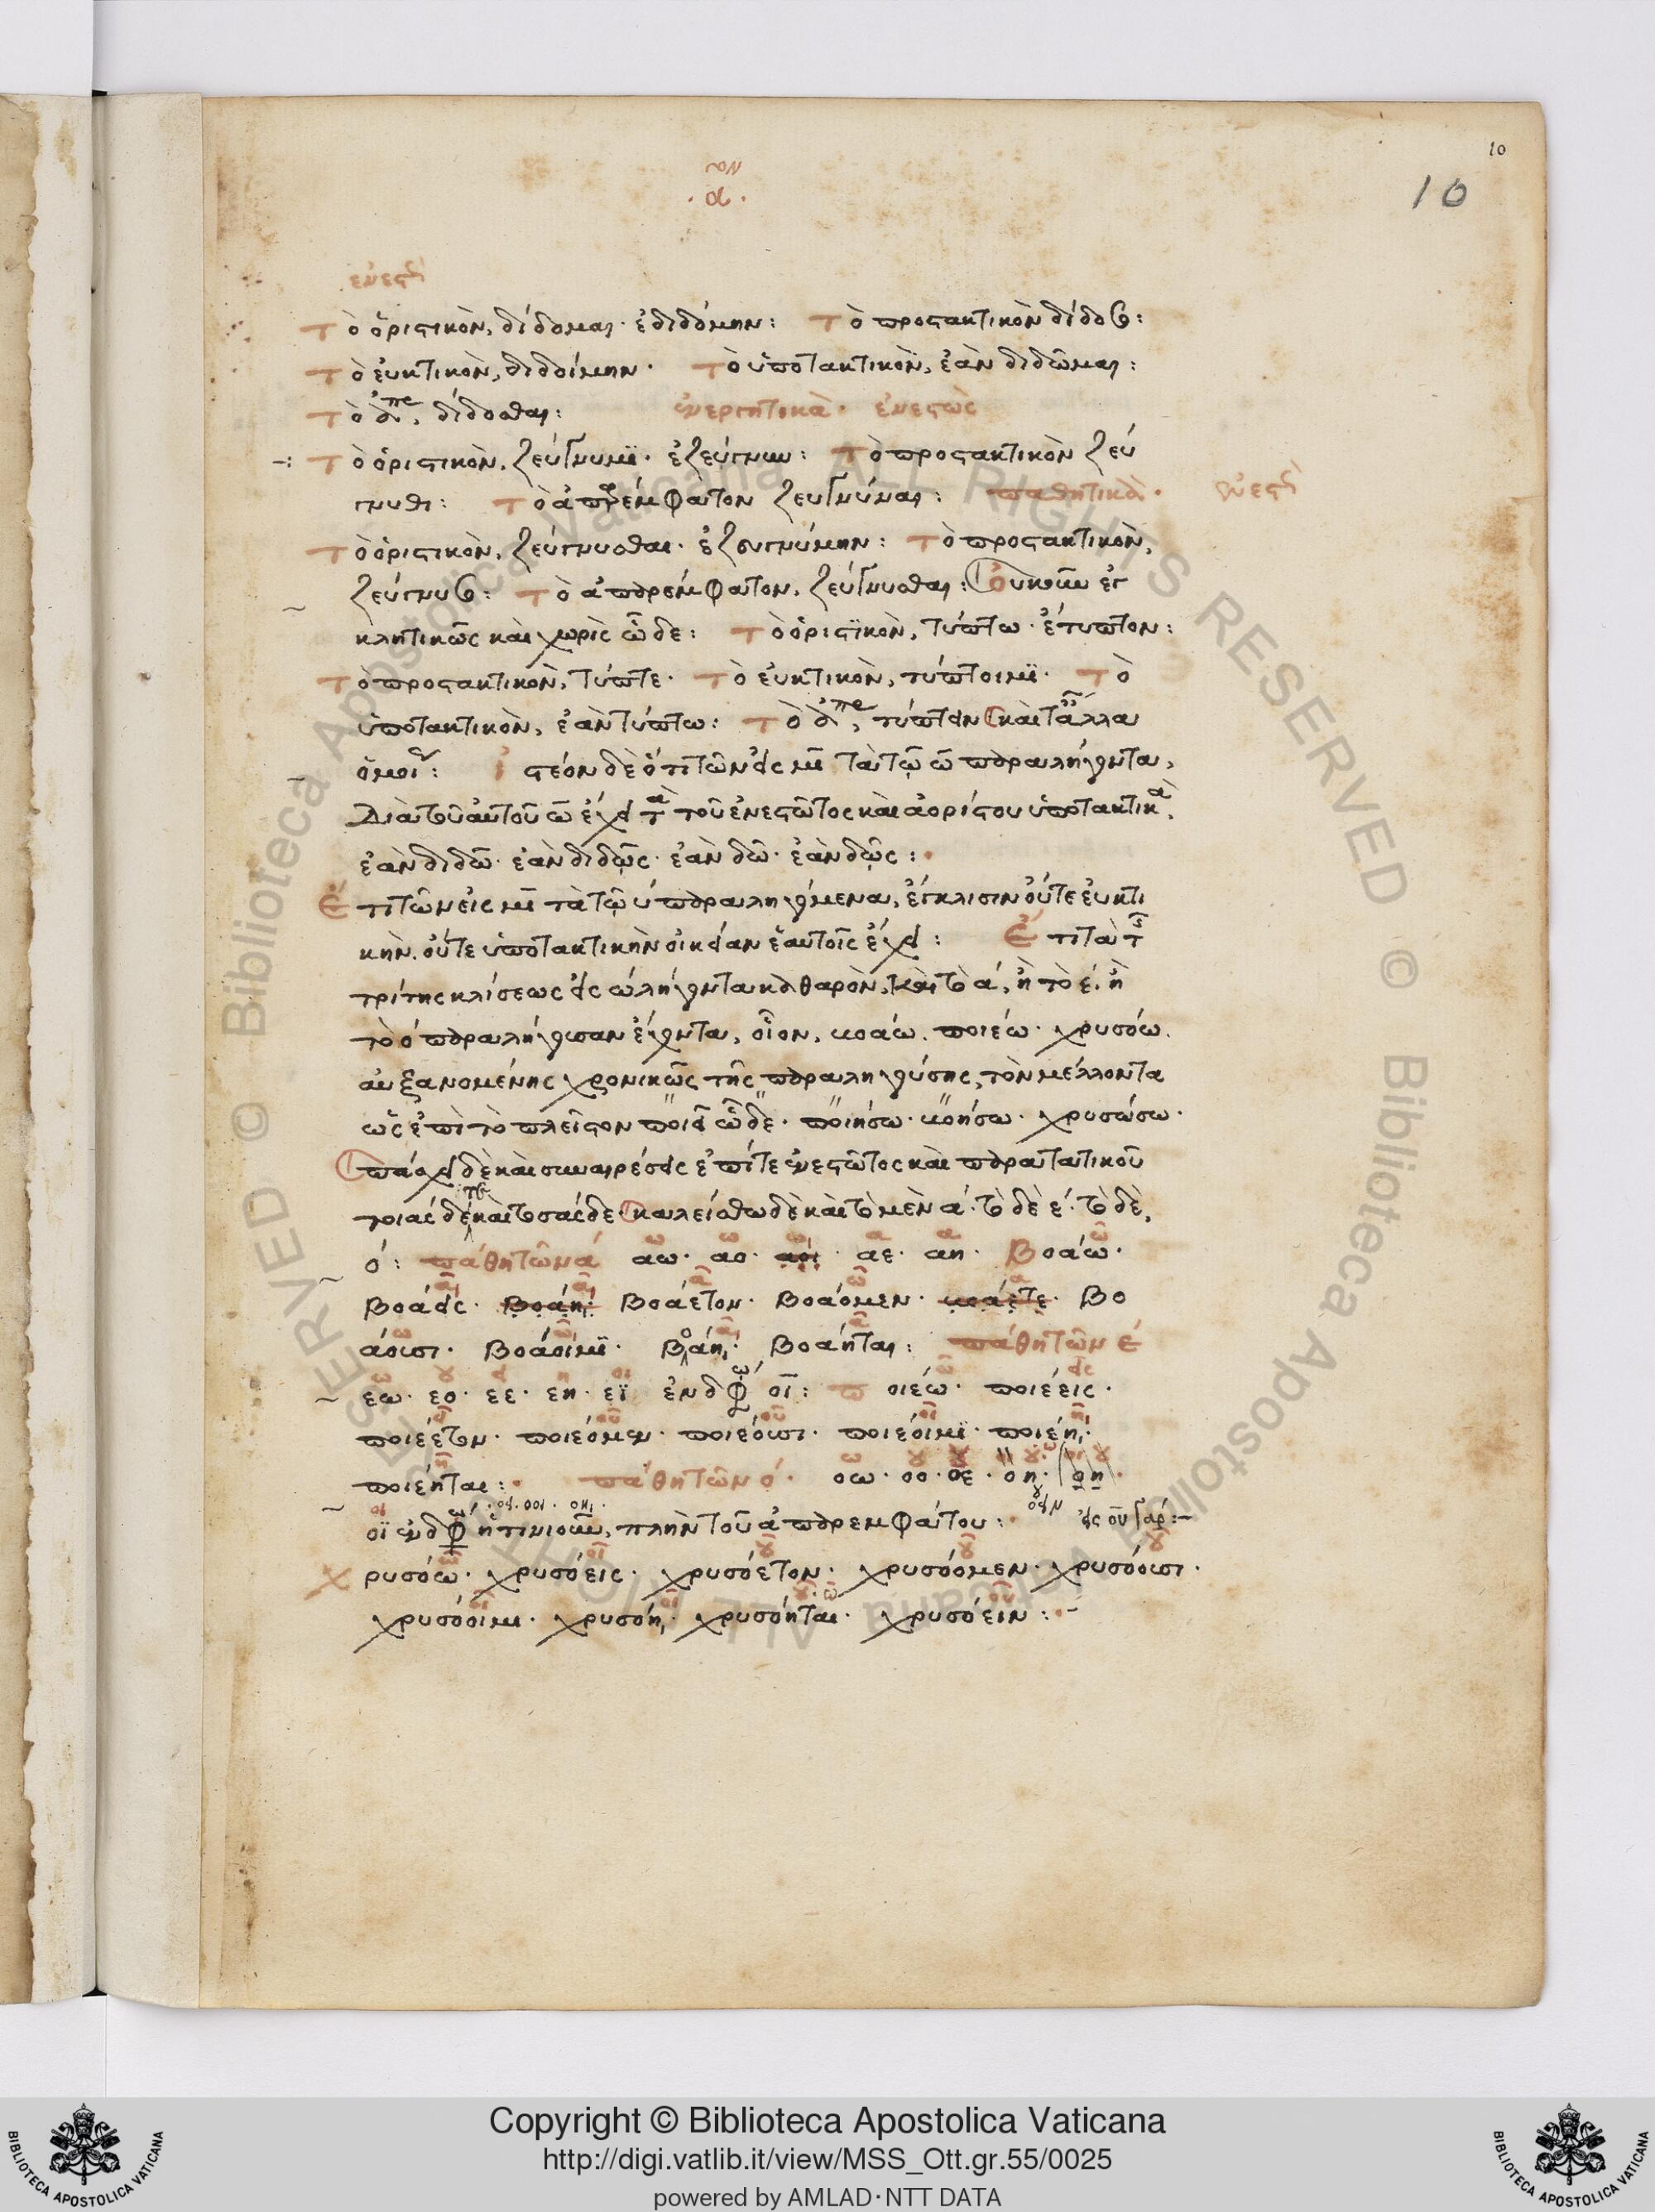 10
10
ον
·α·
ἐνεστ
Τὸ ὁριστικὸν, δίδομαι· ἐδιδόμην: Τὸ προστακτικὸν δίδοσο:
Τὸ εὐκτικὸν, διδοίμην· Τὸ ὑποτακτικὸν, ἐὰν διδῶμαι:
Τὸ ἀπε, δίδοσθαι: ἐνεργητικὰ· ἐνεστὼς
Τὸ ὁριστικὸν, ζεύγνυμϊ· ἐζεύγνυν: Τὸ προστακτικὸν ζεύ
γνυθι: Τὸ ἀπαρέμφατον ζευγνύναι: παθητικὰ· ἐνεστ
Τὸ ὁριστικὸν, ζεύγνυσθαι· ἐζευγνύμην: Τὸ προστακτικὸν,
ζεύγνυσο: Τὸ ἀπαρέμφατον, ζεύγνυσθαι: Οὐκοῦν ἐγ
κλητικῶς καὶ χωρὶς ὧδε: Τὸ ὁριστϊκὸν, τύπτω· ἔτυπτον:
Τὸ προστακτικὸν, τύπτε· Τὸ εὐκτικὸν, τύπτοιμϊ· Τὸ
ὑποτακτικὸν, ἐὰν τύπτω: Τὸ ἀπε, τύπτειν καὶ τἄλλα
ὁμοί: Ἰστέον δὲ ὅτι τῶν εἰς μι τὰ τῷ ω παραλήγοντα,
Διὰ τοῦ αὐτοῦ ω ἔχει τὰ τοῦ ἐνεστῶτος καὶ ἀορίστου ὑποτακτικὰ,
ἐὰν διδῶ· ἐὰν διδῷς· ἐὰν δῶ· ἐὰν δῷς:
Ἔτι τῶν εἰς μι τὰ τῷ υ παραληγόμενα, ἔγκλισιν οὔτε εὐκτι
κὴν, οὔτε ὑποτακτικὴν οἰκείαν ἑαυτοῖς ἔχει: Ἔτι τὰ τῆς
τρίτης κλίσεως εἰς ω λήγοντα καθαρὸν, καὶ τὸ α, ἢ τὸ ε, ἢ
τὸ ο παραλήγωσαν ἔχοντα, οἷον, βοάω, ποιέω· χρυσόω.
αὐξανομένης χρονικῶς τῆς παραληγούσης, τὸν μέλλοντα
ὡς ἐπὶ τὸ πλεῖστον ποιεῖ ὧδε· ποιήσω· βοήσω· χρυσώσω·
πάσχει δὲ καὶ συναιρέσεις ἐπί τε ἐνεστῶτος καὶ παρατατικοῦ
τοιάσδε καὶ τοσάσδε καλείσθω δὲ καὶ τὸ μὲν α· τὸ δὲ ε· τὸ δὲ,
ο: πάθη τῶν ά αω· αο· αοι· αε· αη· Βοάω·
βοάεις· βοάῃ· βοάετον· βοάομεν· βοάετε· βο
άουσι· βοάοιμϊ· βοάῃ· βοάηται: πάθη τῶν έ
εω· εο· εε· εη· εϊ ἐν δφ οϊ: ποιέω· ποιέεις·
ποιέετον· ποιέομεν· ποιέουσι· ποιέοιμϊ· ποιέῃ·
ποιέηται: πάθη τῶν ό· οω· οο· οε· οη· οη
οει· οοι· οηι·
οϊ ἐν δφ ἥτινι οὖν, πλὴν τοῦ ἀπαρεμφάτου: οειν εἰς ου γάρ:
Χρυσόω· χρυσόεις· χρυσόετον· χρυσόομεν· χρυσόουσι·
χρυσόοιμι· χρυσόῃ· χρυσόηται· χρυσόειν:
Copyright © Biblioteca Apostolica Vaticana
http://digi.vatlib.it/view/MSS_Ott.gr.55/0025
powered by AMLAD·NTT DATA
BIBLIOTECA APOSTOLICA VATICANA
BIBLIOTECA APOSTOLICA VATICANA
© Biblioteca Apostolica Vaticana ALL RIGHTS RESERVED © Biblioteca Apostolica Vaticana ALL RIGHTS RESERVED